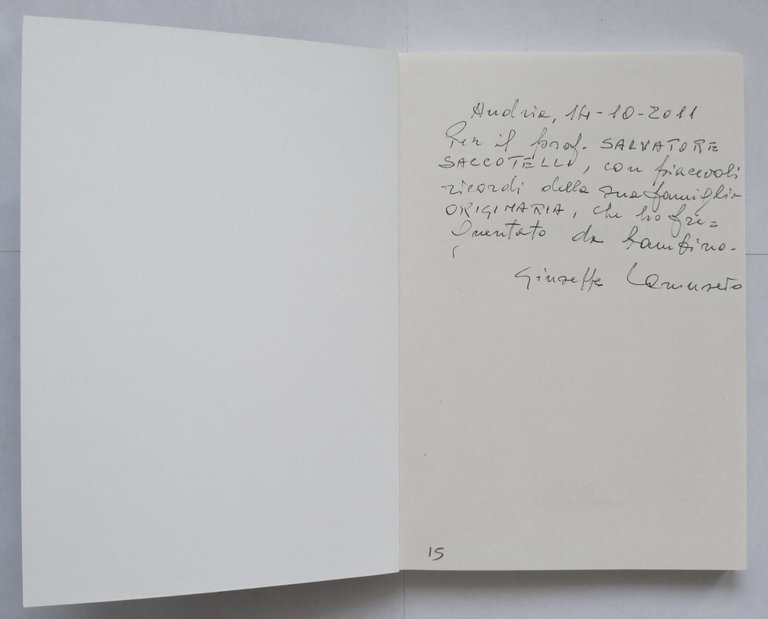 Andria, 14-10-2011
Per il prof. SALVATORE
SACCOTELLO, con piacevoli
ricordi della sua famiglia
ORIGINARIA, che ho fre=
quentato da bambino.
Giuseppe
15